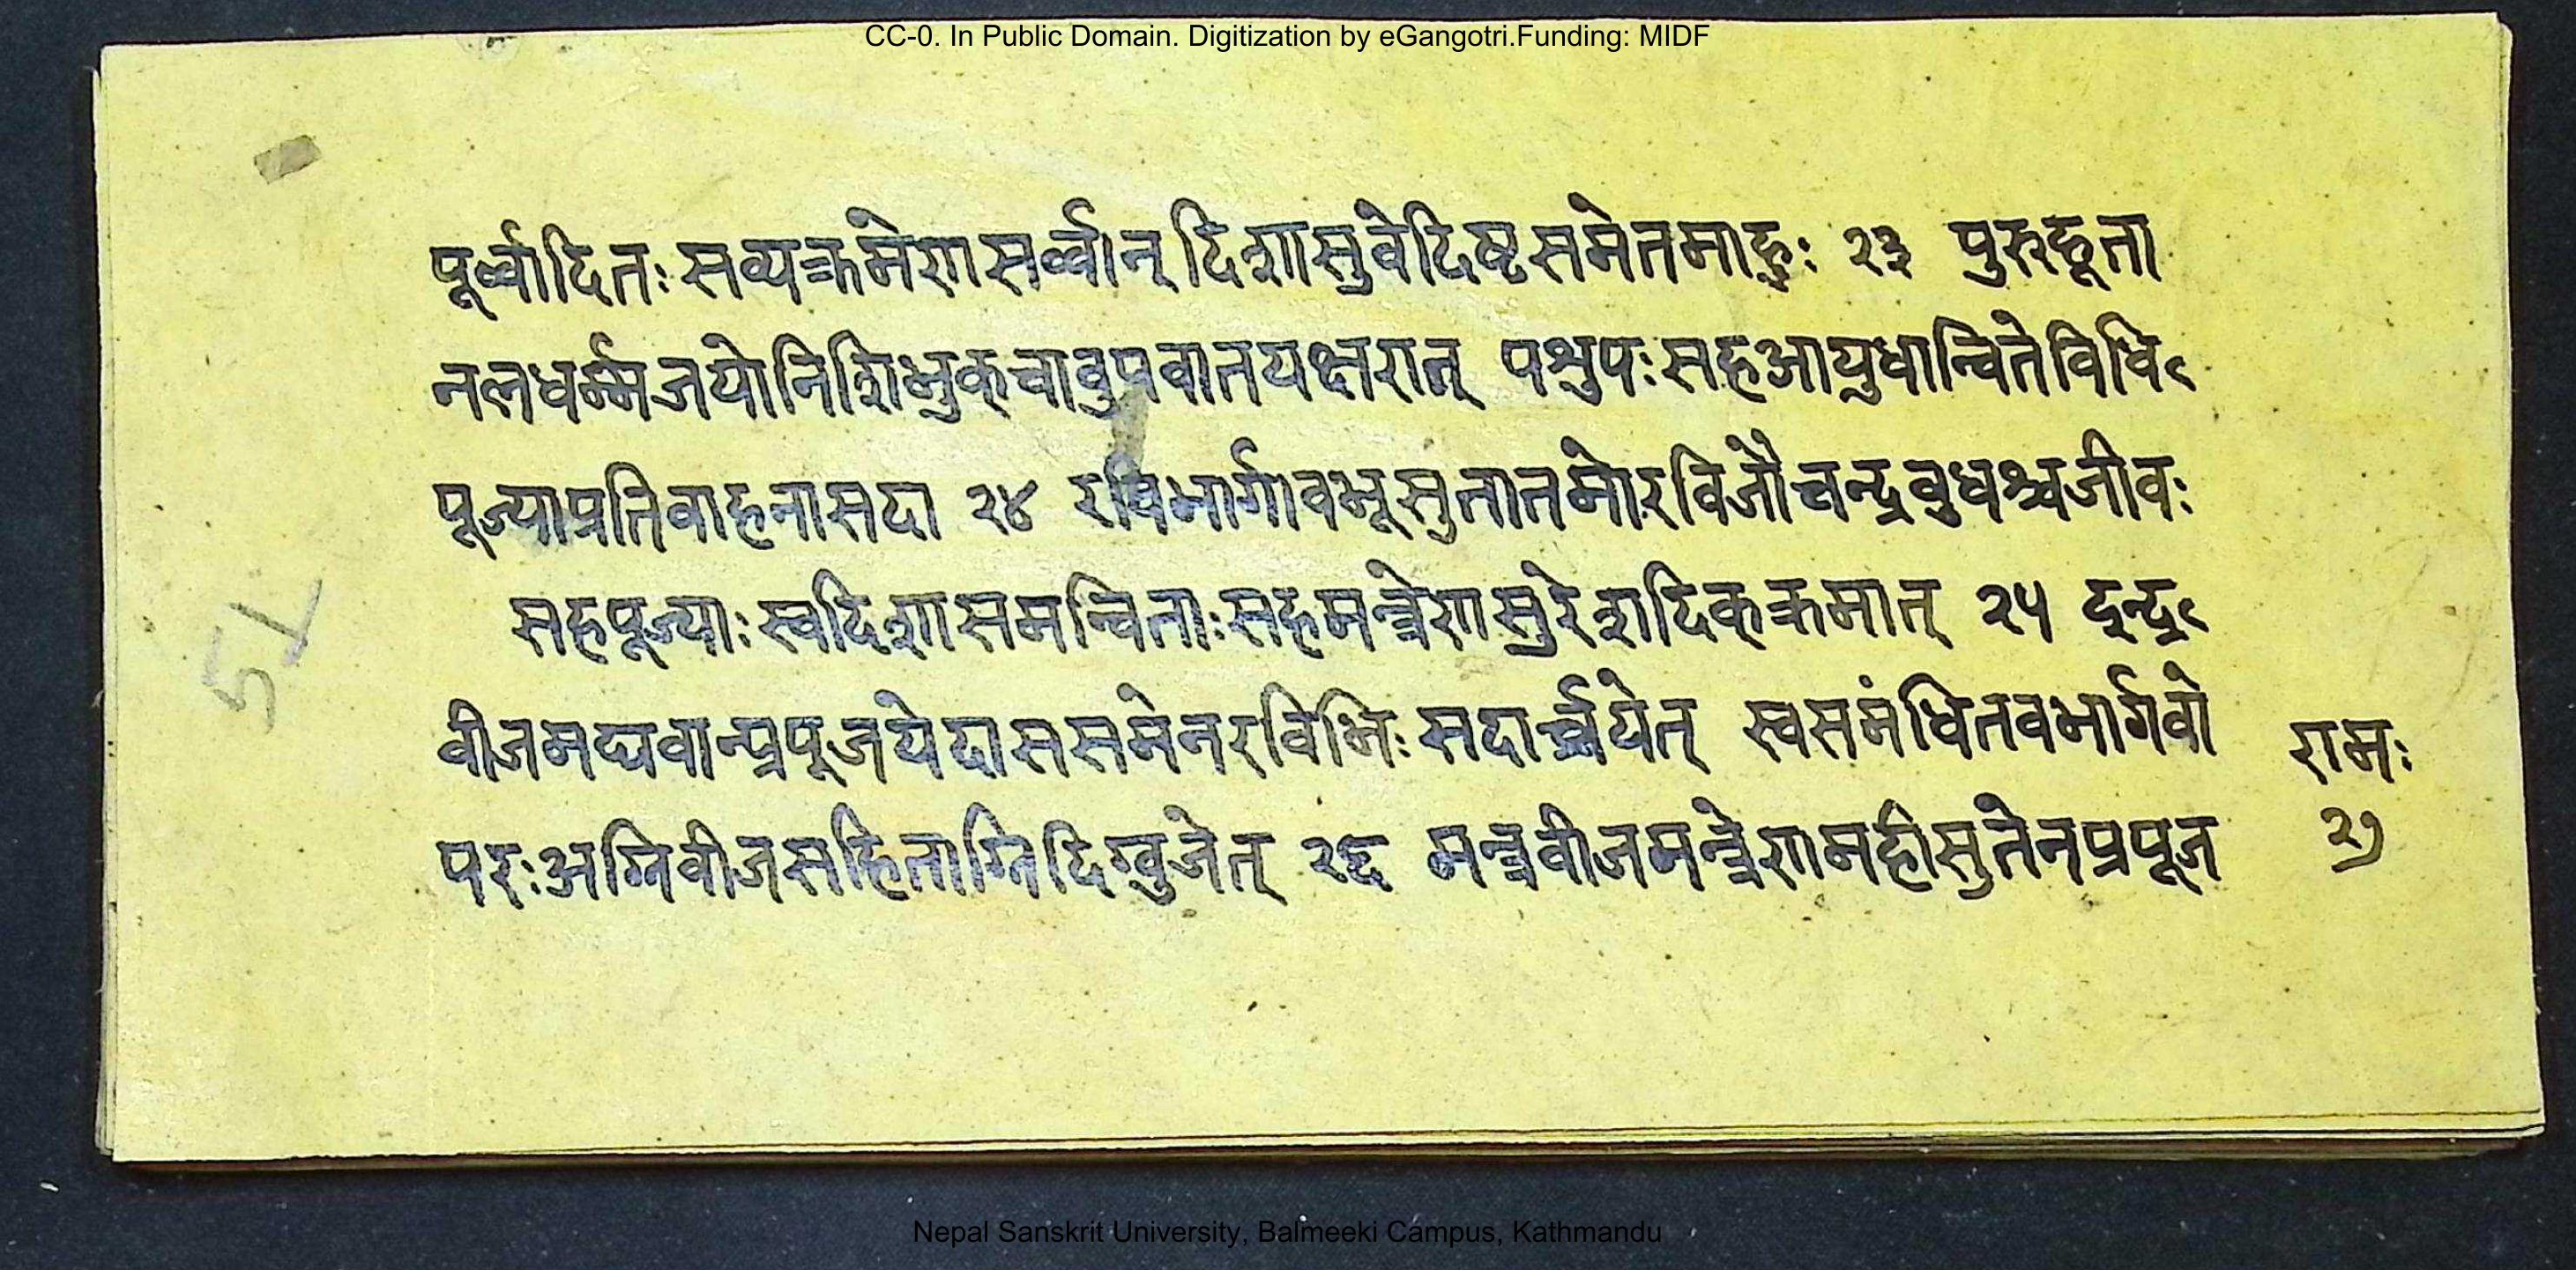 CC-0. In Public Domain. Digitization by eGangotri.Funding: MIDF
पूर्व्वादितः सव्यक्रमेणसर्व्वान् दिशासुवेदिष्टसमेतमाहुः २३ पुरुहूता
नलधर्म्मजयोनिशिभुक्चावुपवातयक्षरात् पश्रुपःसहआयुधान्वितेविधि९
पूज्याप्रतिवाहनासदा २४ रविभार्गावभूसुतातमोरविजौचन्द्रबुधश्चजीवः
सहपूज्याः स्वदिशासमन्विताःसहमन्त्रेणसुरेशदिक्क्रमात् २५ द्वन्द्व९
वीजमघवान्प्रपूजयेदाससमेनरविभिः सदार्च्चयेत् स्वसमंधितवभार्गवो
परःअग्निवीजसहिताग्निदिग्वुजेत् २६ मन्त्रवीजमन्त्रेणमहीसुतेनप्रपूज
रामः
२७
52
Nepal Sanskrit University, Balmeeki Campus, Kathmandu